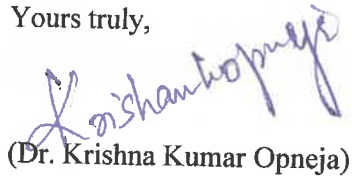 Yours truly,
Krishankopneji
(Dr. Krishna Kumar Opneja)